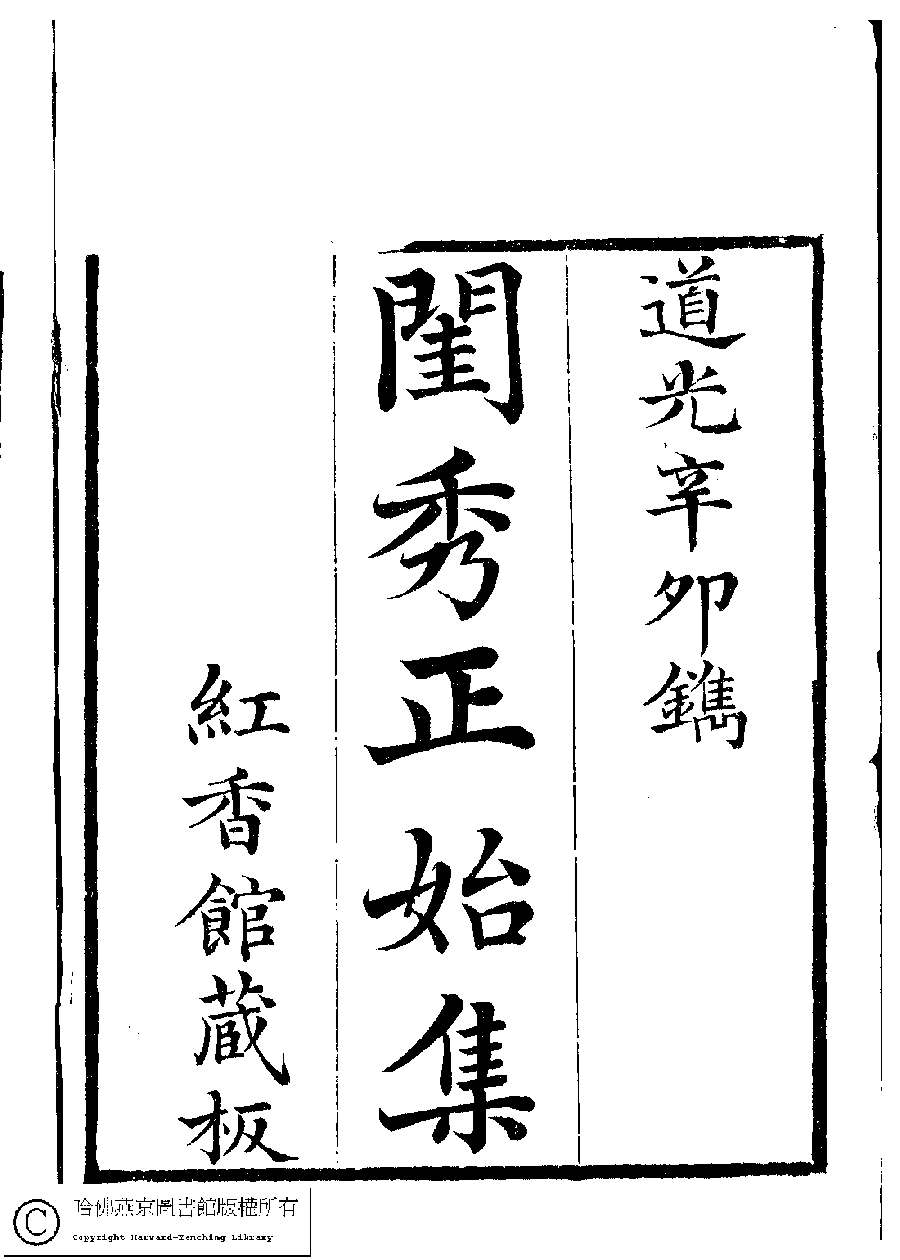 道光辛卯鐫
閨秀正始集
紅香館藏板
哈佛燕京圖書館版權所有
Copyright Harvard-Yenching Library